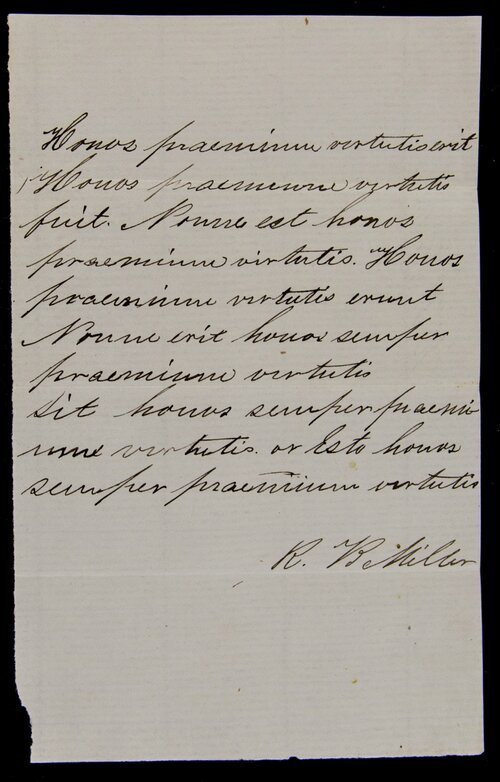 Honos praemium virtutis erit
Honos praemium virtutis
fuit. Nonne est honos
praemium virtutis. Honos
praemium virtutis erunt
Nonne erit honos semper
praemium virtutis
Sit honos semper praemi
um virtutis. or Esto honos
semper praemium virtutis
R. B Miller